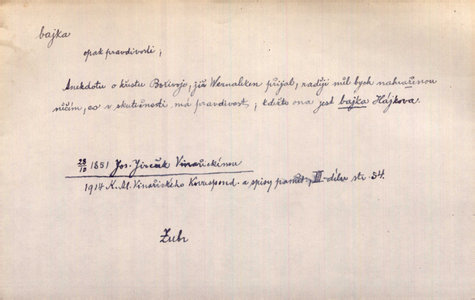 bajka
opak pravdivosti;
Anekdotu o křstu Bořivoje, již Wernaleken přijal, raději měl bych nahraženou
něčím, co v skutečnosti má pravdivost, ; kdežto ona jest bajka Hájkova.
28/10 1851 Jos. Jireček Vinařickému
1914 K. Al. Vinařického Korrespond. a spisy pamět. III. dílu str. 54.
Zubr